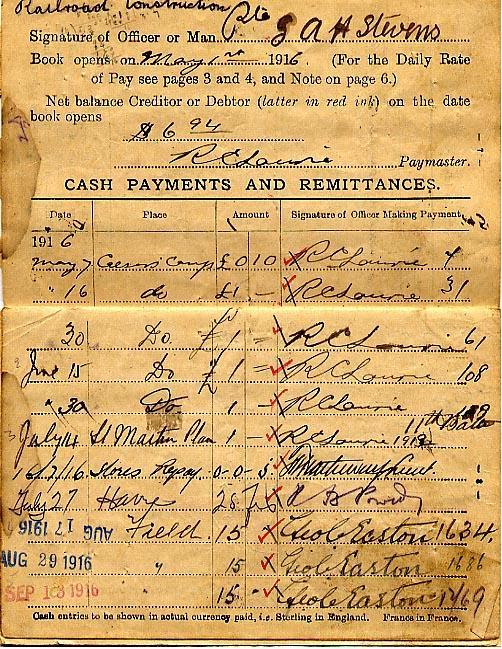 Railroad Construction
Signature of Officer or Man Pte G A H Stevens
Book opens on May 1st 1916 (For the Daily Rate
of Pay see pages 3 and 4, and Note on page 6.)
Net balance Creditor or Debtor (latter in red ink) on the date
book opens
$6 94
R C Laurie Paymaster.
CASH PAYMENTS AND REMITTANCES.
Date Place Amount Signature of Officer Making Payment
1916
May 7 Caesar's Camp £0 10 R C Laurie 4
" 16 do £1 - R C Laurie 31
30 Do £1 - R C Laurie 61
June 15 Do £1 - R C Laurie 108
" 30 Do 1 - R C Laurie
July 14 St Martin Plain 1 - R C Laurie 11th Batn
16/7/16 Stores 0-0-5
July 27 Havre 28
AUG 17 1916 Field 15 Geo C Easton 1634
AUG 29 1916 " 15 Geo C Easton 1686
SEP 13 1916 " 15 Geo C Easton 1769
Cash entries to be shown in actual currency paid, i.e. Sterling in England. Francs in France.